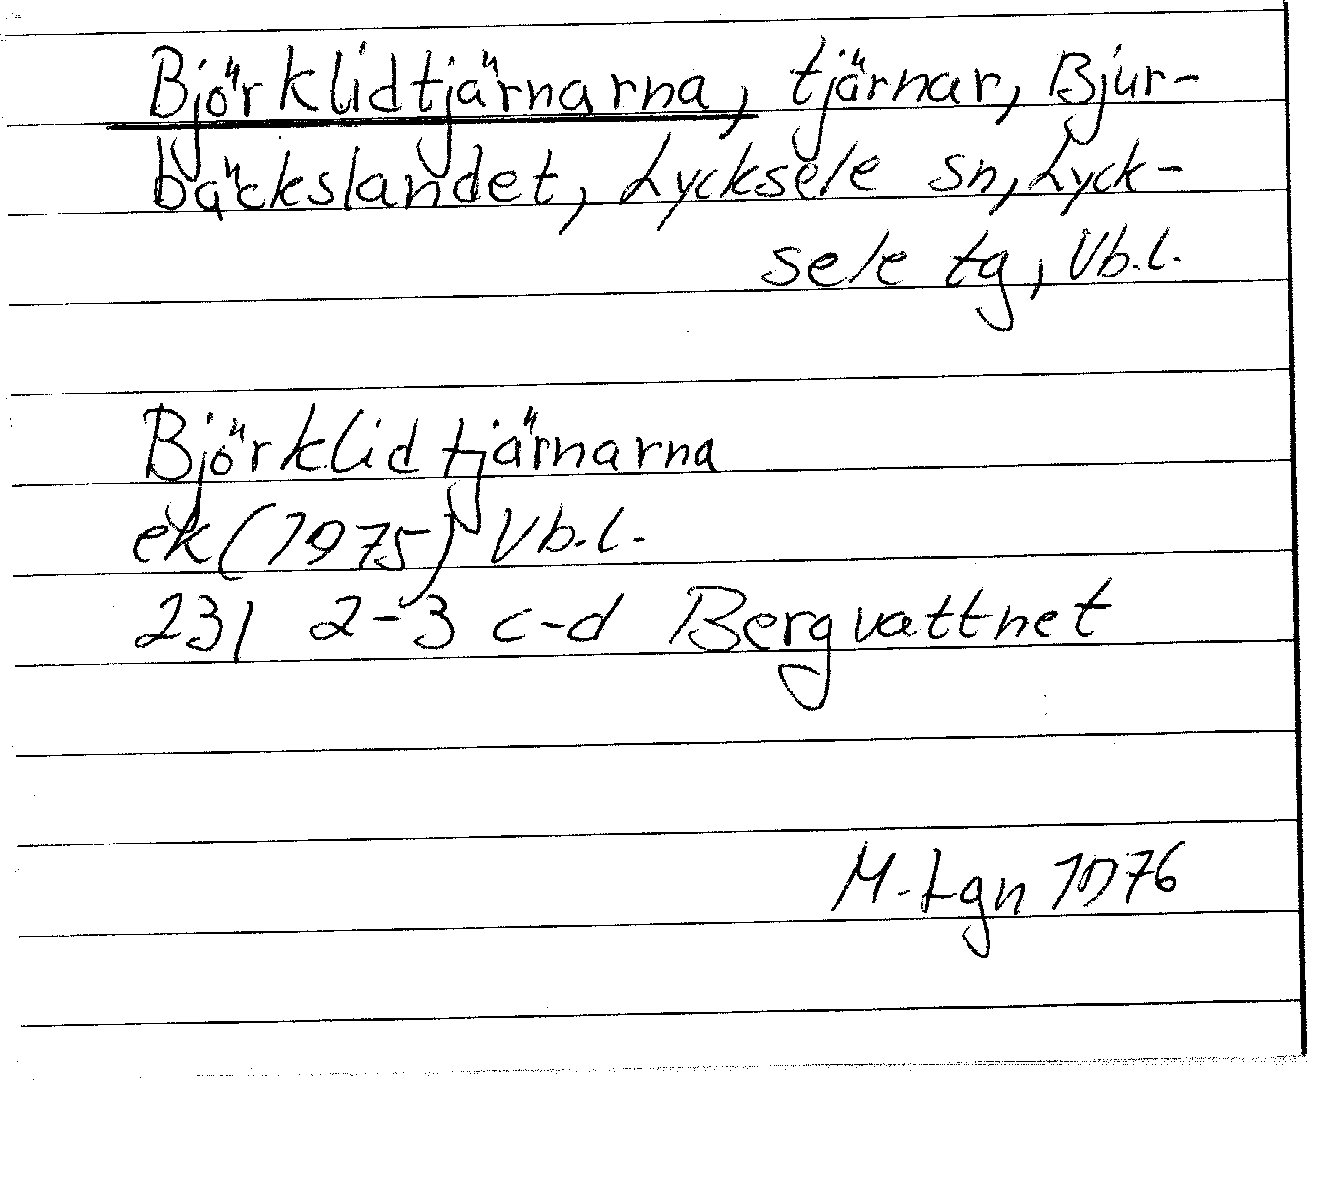 Björklidtjärnarna, tjärnar, Bjur-
bäckslandet, Lycksele sn, Lyck-
sele tg, Vb.l.
Björklidtjärnarna
ek (1975) Vb.l.
23J 2-3 c-d Bergvattnet
M. Lgn 1976